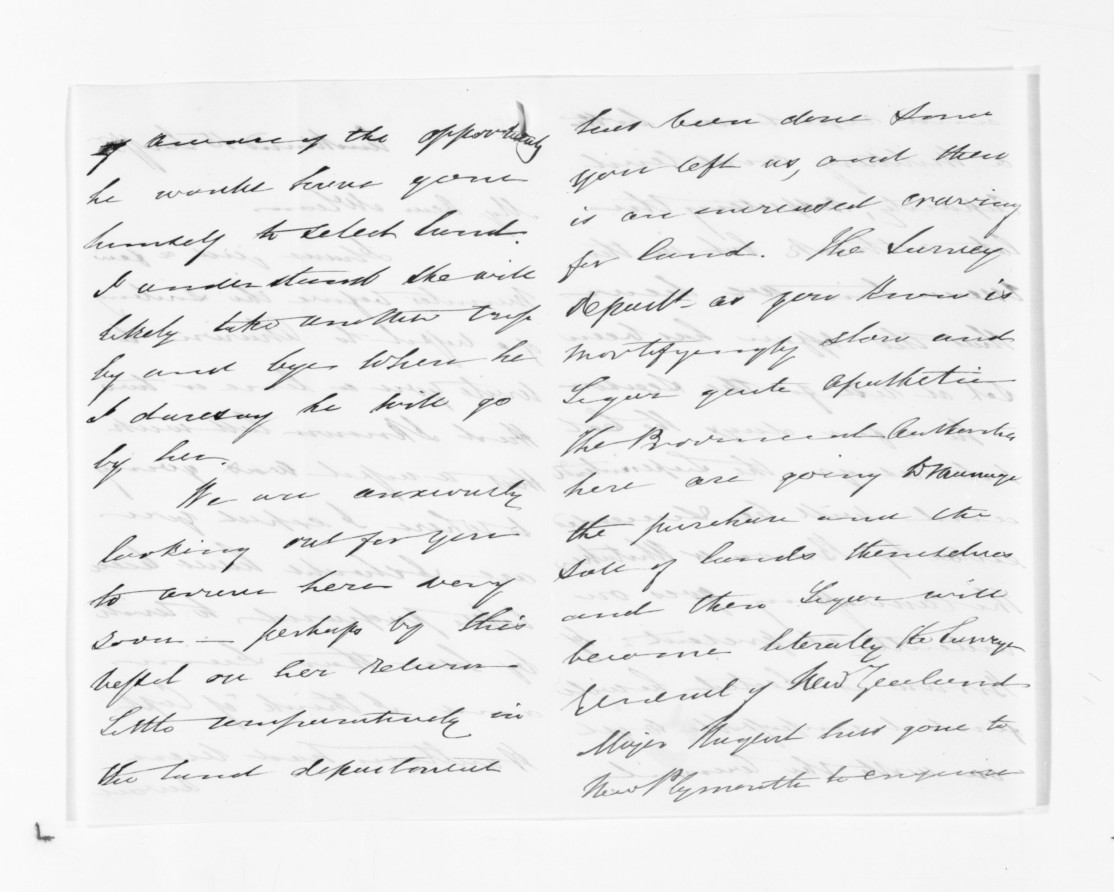 if aware of the opportunity
he would have gone
himself to select land.
I understand she will
likely take another trip
by and bye when he
I daresay he will go
by her.
We are anxiously
looking out for you
to arrive here very
soon — perhaps by this
vessel on her return
Little comparatively in
the land department
has been done since
you left us, and there
is an increased craving
for land. The Survey
Depart as you know is
mortifyingly slow and
Ligar quite apathetic
The Provincial Authorities
here are going to manage
the purchase and the
sale of lands themselves
and then Ligar will
become literally the Surveyor
General of New Zealand
Major Nugent has gone to
New Plymouth to enquire